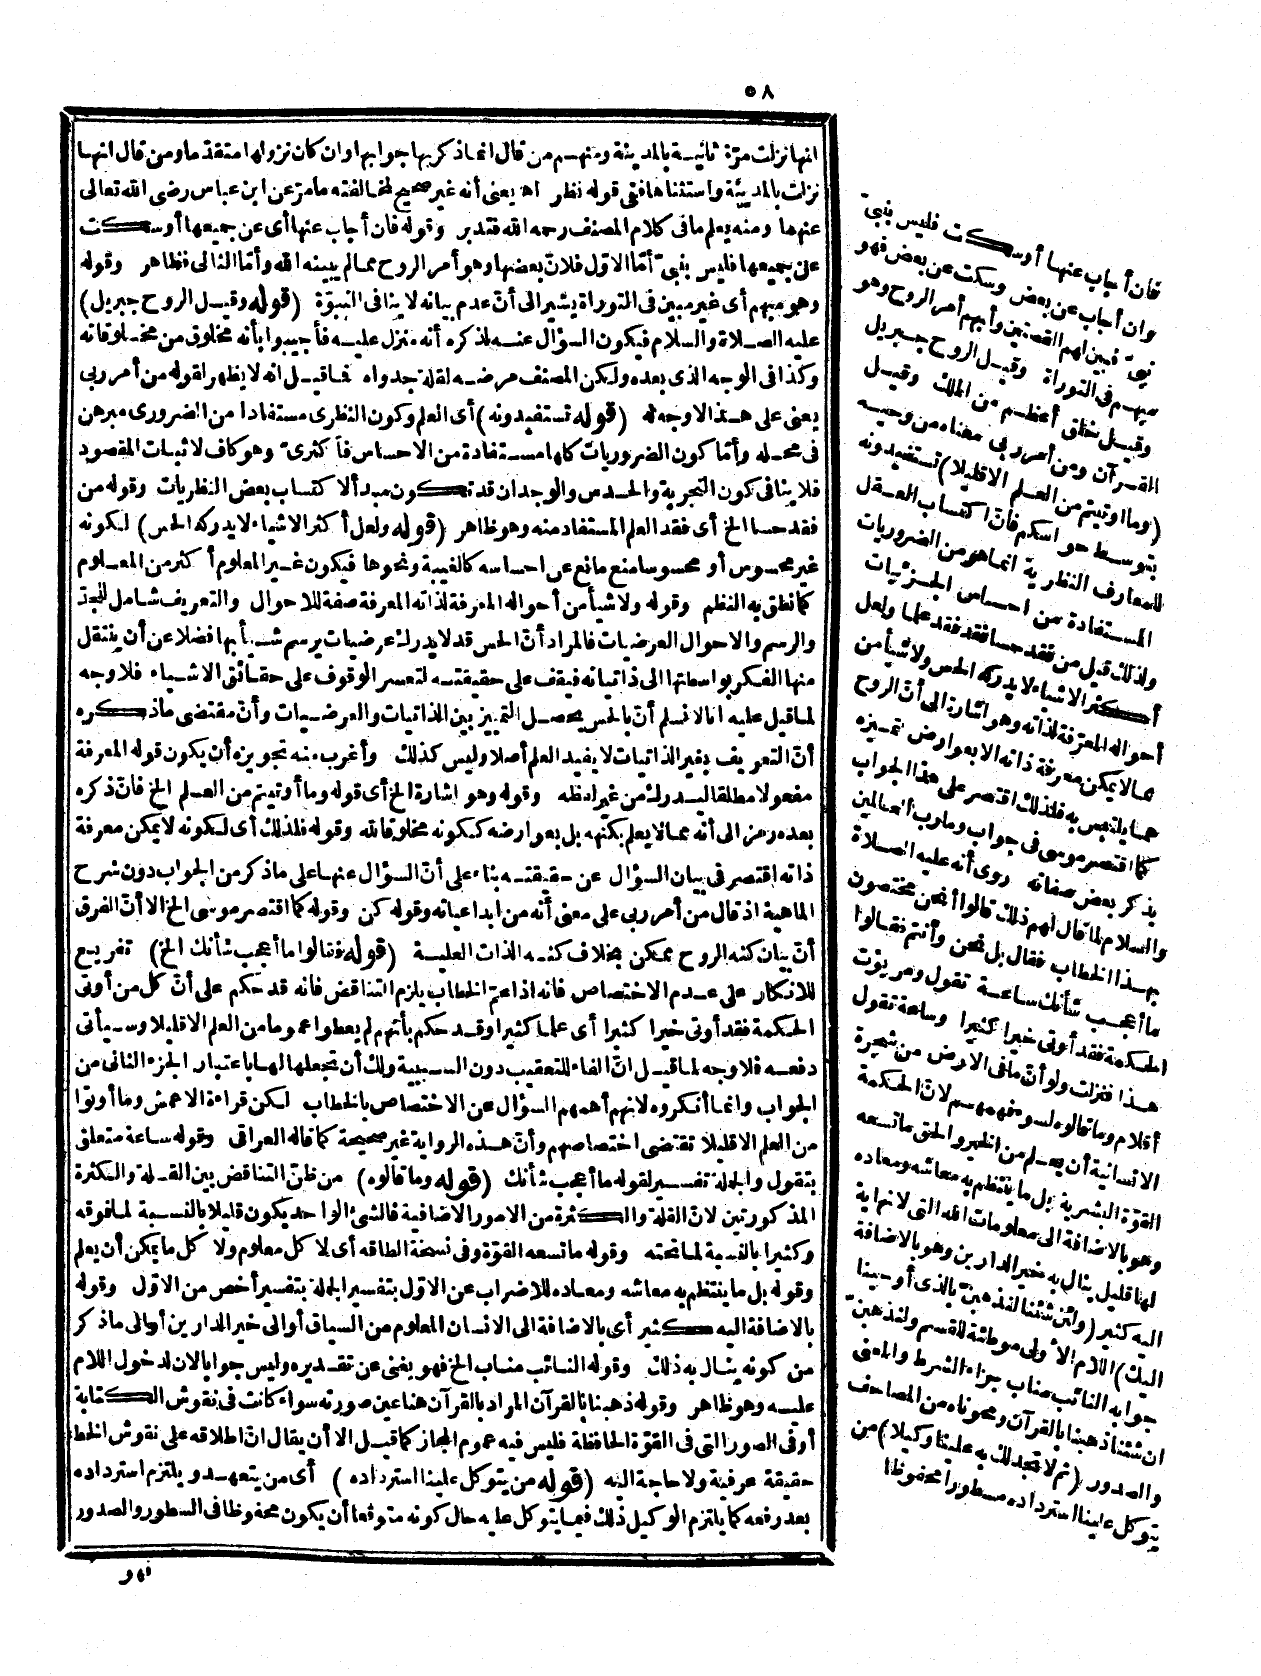 ٥٨
انها نزلت مرّة ثانيـة بالمدينة ومنهـم من قال انما ذكر بها جوابها وان كان نزولها متقدّما ومن قال انهـا
نزلت بالمدينة واستثناها ففى قوله نظر اهـ يعنى أنه غير صحيح لمخالفته مامرّ عن ابن عباس رضى الله تعالى
عنهما ومنه يعلم مافى كلام المصنف رحمه الله فتدبر وقوله فان أجاب عنها أى عن جميعها أوسكت
عن جميعها فليس بنبىّ أمّا الاوّل فلانّ بعضها وهو أمر الروح ممالم يبينه الله وأمّا الثانى فظاهر وقوله
وهو مبهم أى غير مبين فى التوراة يشير الى أنّ عدم بيانه لا ينافى النبوّة (قوله وقيـل الروح جبريل)
عليه الصـلاة والسلام فيكون السؤال عنـه لذكره أنه منزل عليـه فأجيبوا بأنه مخلوق من مخلوقاته
وكذا فى الوجه الذى بعده ولكن المصنف مرضـه لقلة جدواه فـاقيـل انه لا يظهر لقوله من أمر ربى
معنى على هـذا لاوجه له (قوله تستفيدونه) أى العلم وكون النظرى مستفادا من الضرورى مبرهن
فى محـله وأمّا كون الضروريات كلها مسـتفادة من الاحساس فأكثرىّ وهو كاف لاثبات المقصود
فلا ينافى كون التجربة والحـدس والوجدان قد تكون مبدأ لاكتساب بعض النظريات وقوله من
فقد حسا الخ أى فقد العلم المستفاد منه وهو ظاهر (قوله ولعل أكثر الاشياء لا يدركه الحس) لكونه
غير محسوس أو محسوسا منع مانع عن احساسه كالغيبة ونحوها فيكون غـير المعلوم أكثر من المعـلوم
كما نطق به النظم وقوله ولا شيأ من أحواله المعرّفة لذاته المعرفة صفة للاحوال والتعريف شامل للحدّ
والرسم والاحوال العرضيات فالمراد أنّ الحس قد لا يدرك عرضيات يرسم شـيأ بها فضلا عن أن ينتقل
منها الفكر بواسطتها الى ذاتياته فيقف على حقيقتـه لتعسر الوقوف على حقائق الاشـياء فلا وجه
لما قيل عليه انا لا نسلم أنّ بالحس يحصـل التمييز بين الذاتيات والعرضـيات وأنّ مقتضى ماذكره
أنّ التعريف بغير الذاتيات لا يفيد العلم أصلا وليس كذلك وأغرب منه تجويزه أن يكون قوله المعرفة
مفعولا مطلقا ليـدرك من غير لفظه وقوله وهو اشارة الخ أى قوله وما أوتيتم من العـلم الخ فانّ ذكره
بعده رمز الى أنه ممـا لا يعلم بكنهه بل بعوارضه ككونه مخلوقا لله وقوله فلذلك أى لكونه لا يمكن معرفة
ذاته اقتصر فى بيان السؤال عن حقيقتـه بناء على أنّ السؤال عنهـا على ماذكر من الجواب دون شرح
الماهية اذ قال من أمر ربى على معنى أنه من ابداعياته وقوله كن وقوله كما اقتصر موسى الخ الا أنّ الفرق
أنّ بيان كنه الروح ممكن بخلاف كنـه الذات العليـة (قوله فقالوا ما أعجب شأنك الخ) تفريـع
للانكار على عـدم الاختصاص فانه اذا عمّ الخطاب يلزم التناقض فانه قد حكم على أنّ كل من أوتى
الحكمة فقد أوتى خيرا كثيرا أى علما كثيرا وقـد حكم بأنهم لم يعطوا عموما من العلم الاقليلا وسـيأتى
دفعـه فلا وجه لما قيـل انّ الفاء للتعقيب دون السـببية ولك أن تجعلها لها باعتبار الجزء الثانى من
الجواب وانما أنكروه لانهم أهمهم السؤال عن الاختصاص بالخطاب لكن قراءة الاعمش وما أوتوا
من العلم الاقليلا تقتضى اختصاصهم وأنّ هـذه الرواية غير صحيحة كما قاله العراقى وقوله ساعة متعلق
بتقول والجملة تفسـير لقوله ما أعجب شأنك (قوله وما قالوه) من ظنّ التناقض بين القـلة والكثرة
المذكورتين لانّ القلة والكثرة من الامور الاضافية فالشئ الواحد يكون قليلا بالنسـبة لما فوقه
وكثيرا بالنسبة لما تحته وقوله ما تسعه القوّة وفى نسخة الطاقه أى لا كل معلوم ولا كل ما يمكن أن يعلم
وقوله بل ما ينتظم به معاشه ومعاده للاضراب عن الاول بتفسير الجملة بتفسير أخص من الاوّل وقوله
بالاضافة اليه كثير أى بالاضافة الى الانسان المعلوم من السياق أو الى خير الدارين أو الى ماذكر
من كونه ينـال به ذلك وقوله النائب مناب الخ فهو يغنى عن تقـديره وليس جوابا لان لدخول اللام
عليـه وهو ظاهر وقوله ذهبنا بالقرآن المراد بالقرآن هنا عين صورته سواء كانت فى نقوش الكتابة
أو فى الصور التى فى القوّة الحافظة فليس فيه عموم المجاز كما قيـل الا أن يقال انّ اطلاقه على نقوش الخط
حقيقة عرفية ولا حاجة اليه (قوله من يتوكل علينا استرداده) أى من يتعهـد ويلتزم استرداده
بعد رفعه كما يلتزم الوكيل ذلك فيما يتوكل عليه حال كونه متوقعا أن يكون محفوظا فى السطور والصدور
فهو
فان أجاب عنها أوسكت فليس بنبىّ
وان أجاب عن بعض وسكت عن بعض فهو
نبىّ فبين لهم القصتين وأبهم أمر الروح وهو
مبهـم فى التوراة وقيـل الروح جبـريل
وقيـل خلق أعظـم من الملك وقيـل
القـرآن ومن أمر ربى معناه من وحيـه
(وما اوتيتم من العـلم الاقليلا) تستفيدونه
بتوسـط حواسكم فانّ اكتساب العـقل
للمعارف النظرية انماهو من الضروريات
المسـتفادة من احساس الجـزئيات
ولذلك قيل من فقد حسا فقد فقد علما ولعل
أكثر الاشياء لا يدركه الحس ولا شيأ من
أحواله المعرّفة لذاته وهو اشارة الى أنّ الروح
ممـا لا يمكن معرفة ذاته الا بعوارض تميـزه
عمـا يلتبس به فلذلك اقتصر على هذا الجواب
كما اقتصر موسى فى جواب وما رب العـالمين
بذكر بعض صفاته روى أنه عليه الصـلاة
والسلام لما قال لهم ذلك قالوا أنحن مختصون
بهـذا الخطاب فقال بل نحن وأنتم فقـالوا
ما أعجـب شأنك سـاعـة تقول ومن يؤت
الحكمة فقد أوتى خيرا كثيرا وساعة تقول
هـذا فنزلت ولو أنّ ما فى الارض من شجرة
أقلام وما قالوه لسوء فهمهـم لانّ الحكمة
الانسانية أن يعـلم من الخير والحق ما تسعه
القوّة البشرية بل ما ينتظم به معاشه ومعاده
وهو بالاضافة الى معلومات الله التى لا نهاية
لها قليل ينال به خير الدارين وهو بالاضافة
اليه كثير (ولئن شئنا لنذهبنّ بالذى أوحينا
اليك) اللام الأولى موطئة للقسم ولنذهبنّ
جوابه النائب مناب جزاء الشرط والمعنى
ان شئنا ذهبنا بالقرآن ومحوناه من المصاحف
والصدور (ثم لا تجد لك به علينا وكيلا) من
يتوكل علينا استرداده مسطورا محفوظا